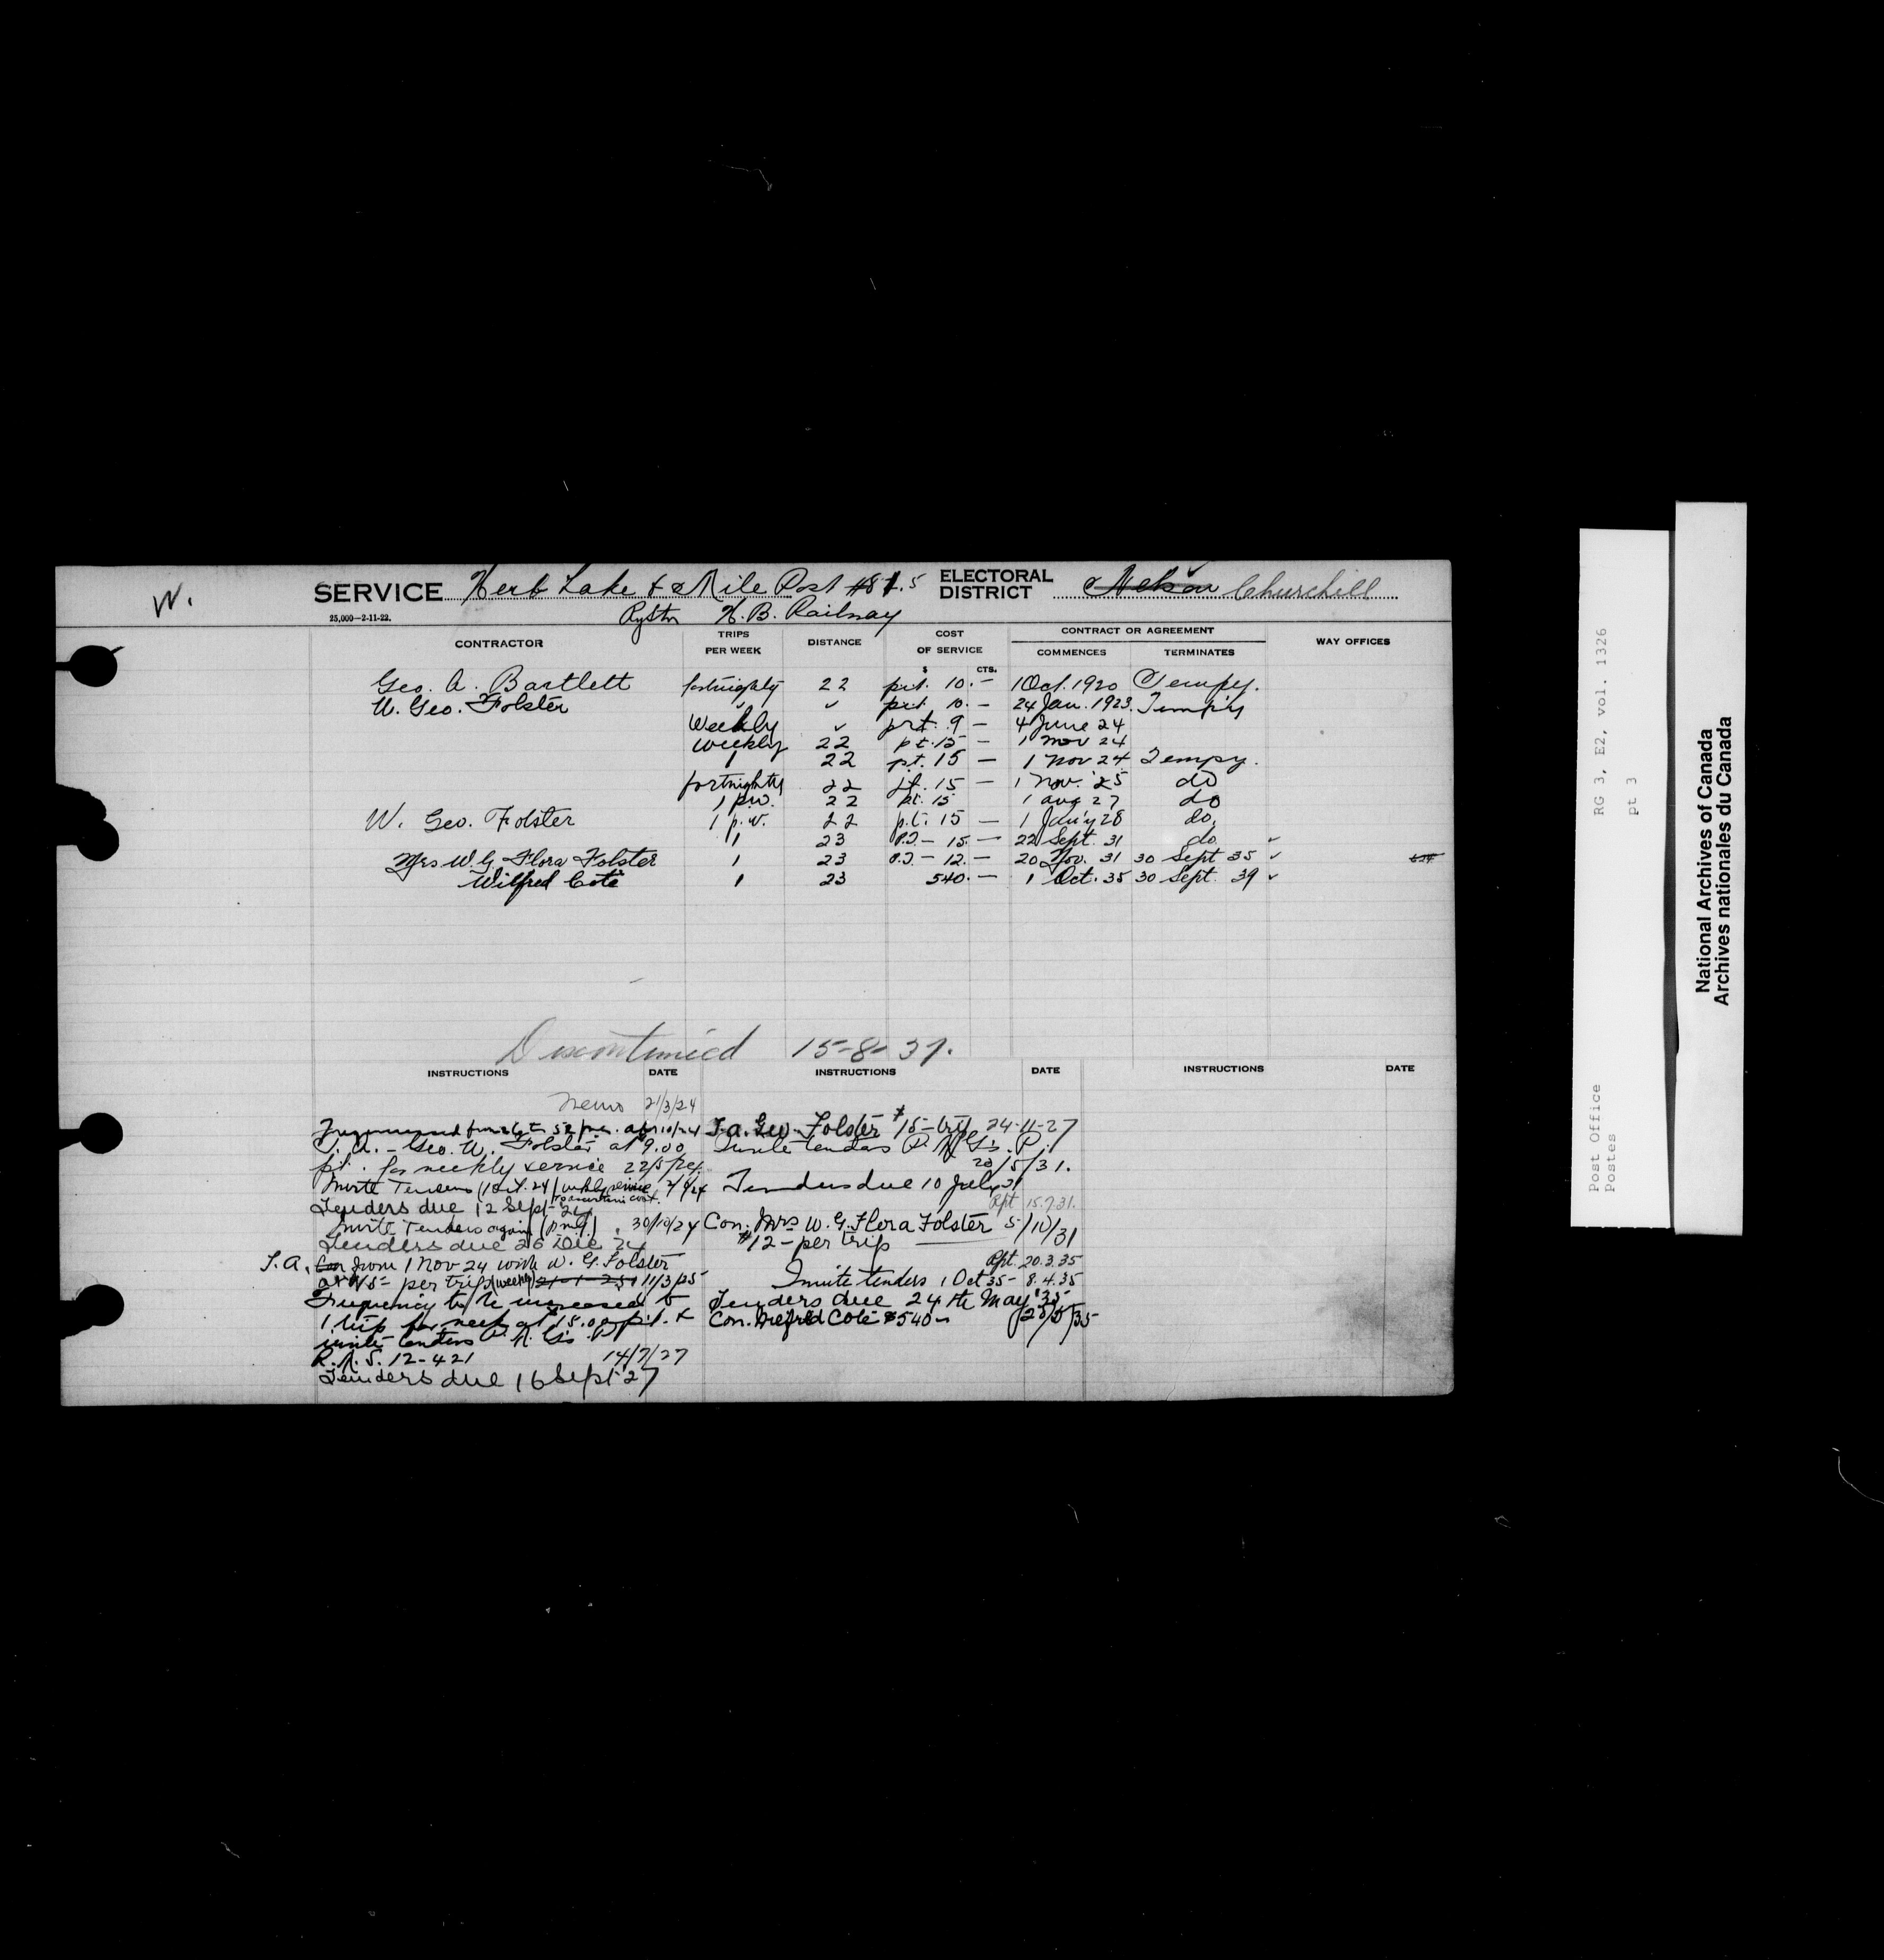 W.
SERVICE Herb Lake & Mile Post #81.5 ELECTORAL DISTRICT Nelson Churchill
25,000—2-11-22.
H. B. Railway
CONTRACTOR TRIPS PER WEEK DISTANCE COST OF SERVICE CONTRACT OR AGREEMENT COMMENCES TERMINATES WAY OFFICES
$ CTS.
Geo. A. Bartlett fortnightly 22 prt. 10.— 1 Oct. 1920 Tempy.
W. Geo. Folster " ✓ prt 10.— 24 Jan. 1923. Temp'y
Weekly ✓ prt. 9 — 4 June 24
weekly 22 pt. 15 — 1 Nov 24
1 22 pt. 15 — 1 Nov 24 Tempy.
fortnightly 22 pt. 15 — 1 Nov. '25 do
1 p.w. 22 pt. 15 1 Aug 27 do
W. Geo. Folster 1 p.w. 22 p.t. 15 — 1 Jan'y 28 do.
11 23 P.T — 15.— 22 Sept. 31 do. ✓
Mrs W. G. Flora Folster 1 23 P.T — 12.— 20 Nov. 31 30 Sept 35 ✓
Wilfred Coté 1 23 540.— 1 Oct. 35 30 Sept. 39 ✓
Discontinued 15-8-37.
INSTRUCTIONS DATE INSTRUCTIONS DATE INSTRUCTIONS DATE
Memo 21/3/24
T.A. — Geo. W. Folster at 9.00
pt. for weekly service 22/5/24
Invite Tenders (1 Oct. 24) wkly service 2/9/24
to ascertain cost.
Tenders due 12 Sept 24
Invite Tenders again (P.M.G.) 30/10/24
Tenders due 26 Dec 24
T.A. Con from 1 Nov 24 with W. G. Folster
at $15— per trip (weekly) 21-1-25 11/3/25
Frequency to be increased to
1 trip per week at $15.00 p.t. &
invite tenders
R.M.S. 12-421 14/7/27
Tenders due 16 Sept 27
T.A. Geo. Folster $15— trip 24-11-27
Invite tenders
20/5/31.
Tenders due 10 July 31
Rpt 15.7.31.
Con. Mrs W. G. Flora Folster 5/10/31
$12— per trip
Rpt. 20.3.35
Invite tenders 1 Oct 35 — 8.4.35
Tenders due 24th May '35
Con. Wilfred Coté $540— 28/5/35
Post Office RG 3, E2, vol. 1326
Postes pt 3
National Archives of Canada
Archives nationales du Canada